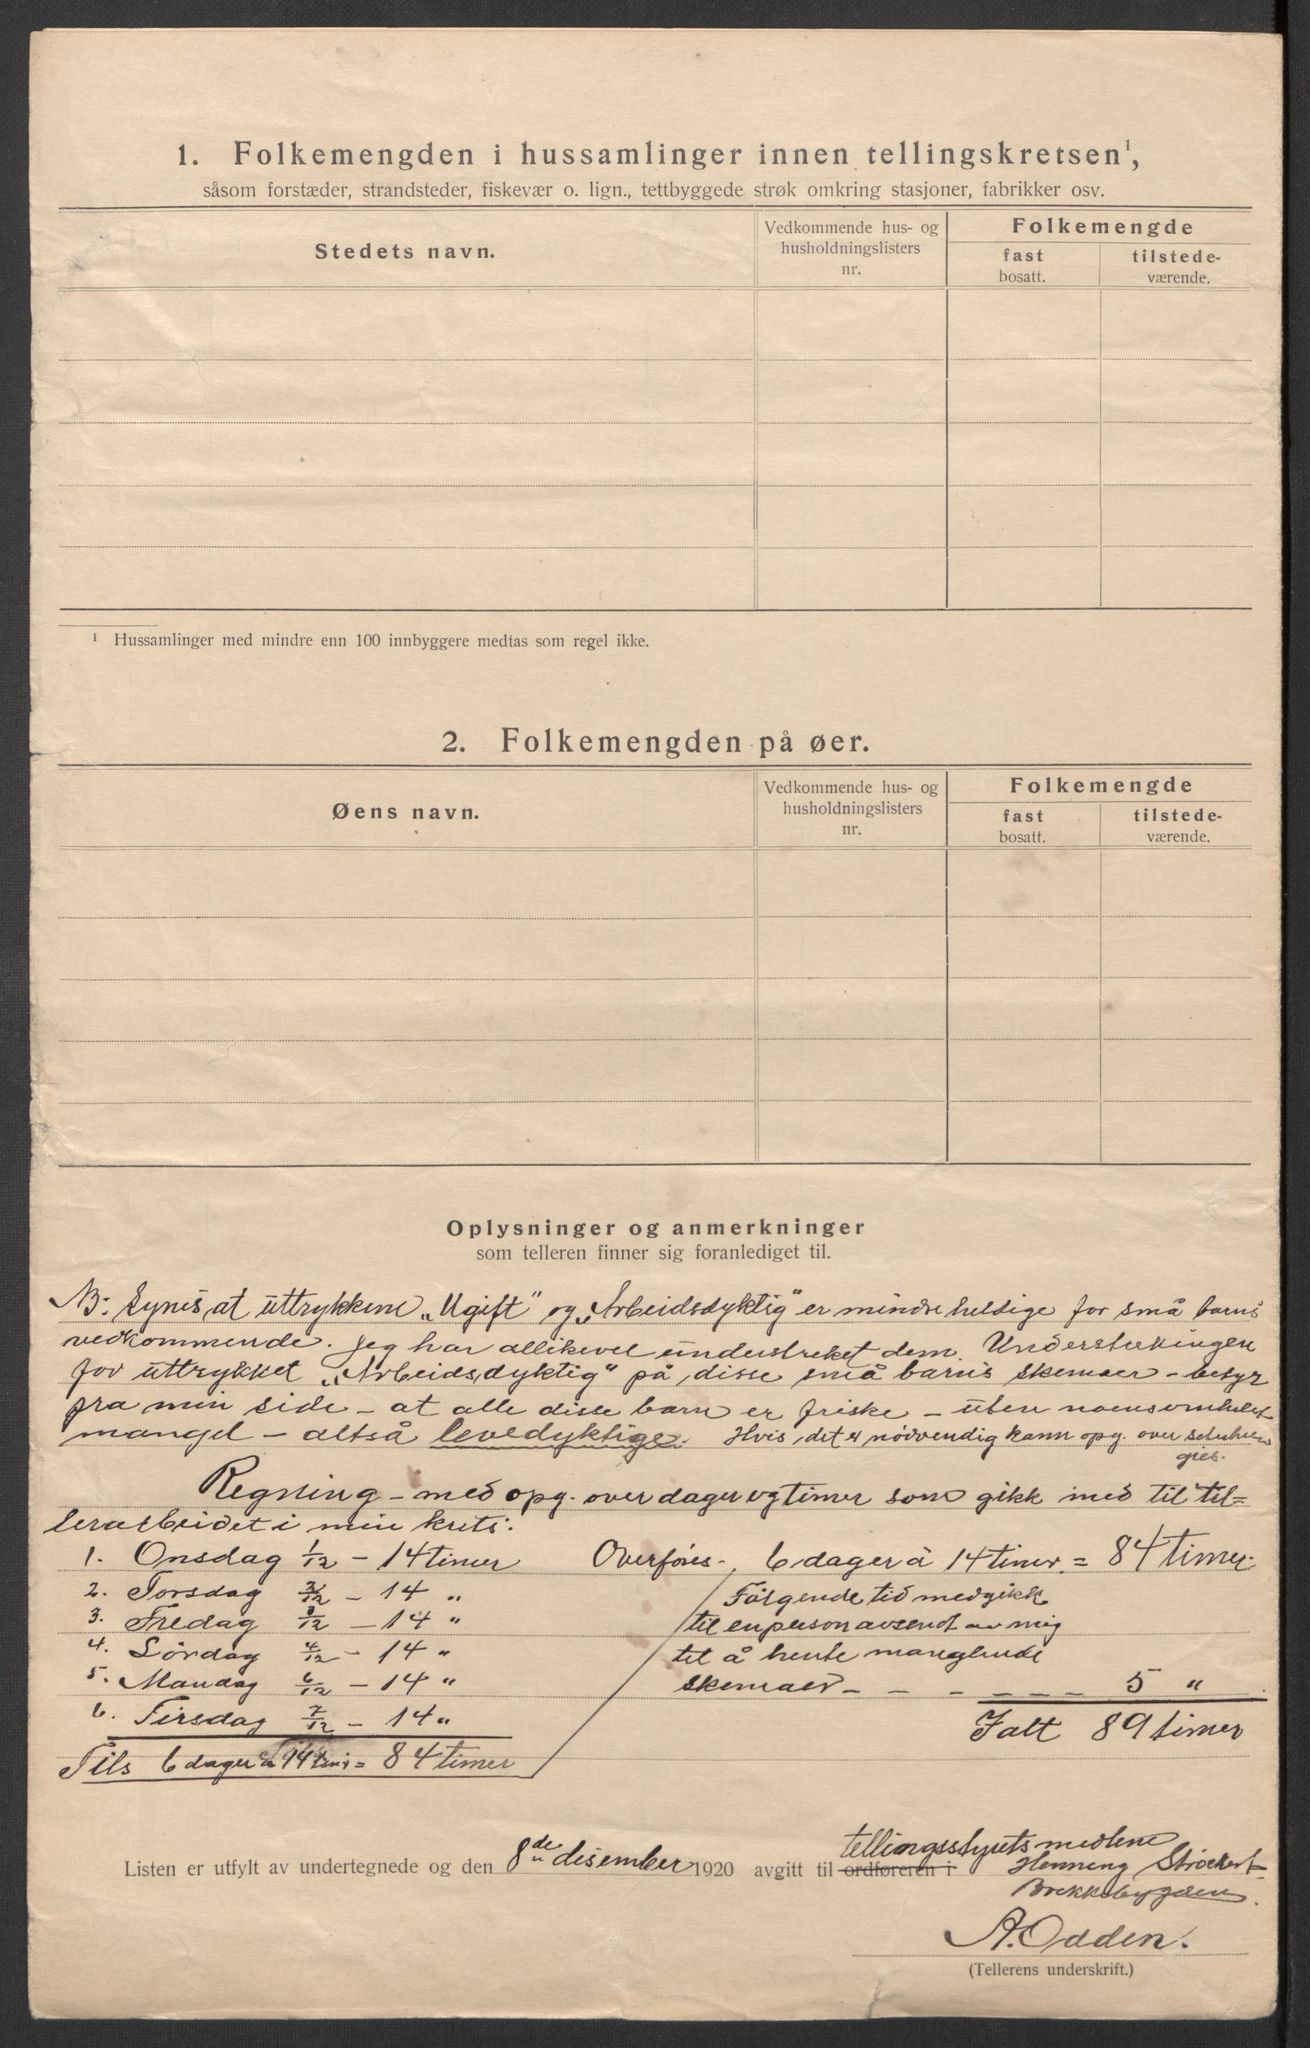 1. Folkemengden i hussamlinger innen tellingskretsen¹,
såsom forstæder, strandsteder, fiskevær o. lign., tettbyggede strøk omkring stasjoner, fabrikker osv.
Stedets navn.
Vedkommende hus- og
husholdningslisters
nr.
Folkemengde
fast
bosatt.
tilstede-
værende.
¹ Hussamlinger med mindre enn 100 innbyggere medtas som regel ikke.
2. Folkemengden på øer.
Øens navn.
Vedkommende hus- og
husholdningslisters
nr.
Folkemengde
fast
bosatt.
tilstede-
værende.
Oplysninger og anmerkninger
som telleren finner sig foranlediget til.
NB: Synes, at uttrykkene „Ugift" og „Arbeidsdyktig" er mindre heldige for små barns
vedkommende. Jeg har allikevel understreket dem. Understrekningen
for uttrykket „Arbeidsdyktig" på disse små barns skemaer – betyr
fra min side – at alle disse barn er friske – uten noensomhelst
mangel – altså levedyktige. Hvis det er nødvendig kann opg. over
gies.
Regning – med opg. over dager og timer som gikk med til tel=
lerarbeidet i min krets:
1. Onsdag 1/12 – 14 timer
2. Torsdag 2/12 – 14 „
3. Fredag 3/12 – 14 „
4. Lördag 4/12 – 14 „
5. Mandag 6/12 – 14 „
6. Tirsdag 7/12 – 14 „
Tils 6 dager a 14 tim. = 84 timer
Overføres. 6 dager à 14 timer. = 84 timer.
Følgende tid medgikk
til en person avsendt av mig
til å hente manglende
skemaer – – – – – – 5 „
Ialt 89 timer
Listen er utfylt av undertegnede og den 8de disember 1920 avgitt til ordføreren i tellingsstyrets medlem
Henning Ströckert
Brekkebygden.
A. Odden.
(Tellerens underskrift.)